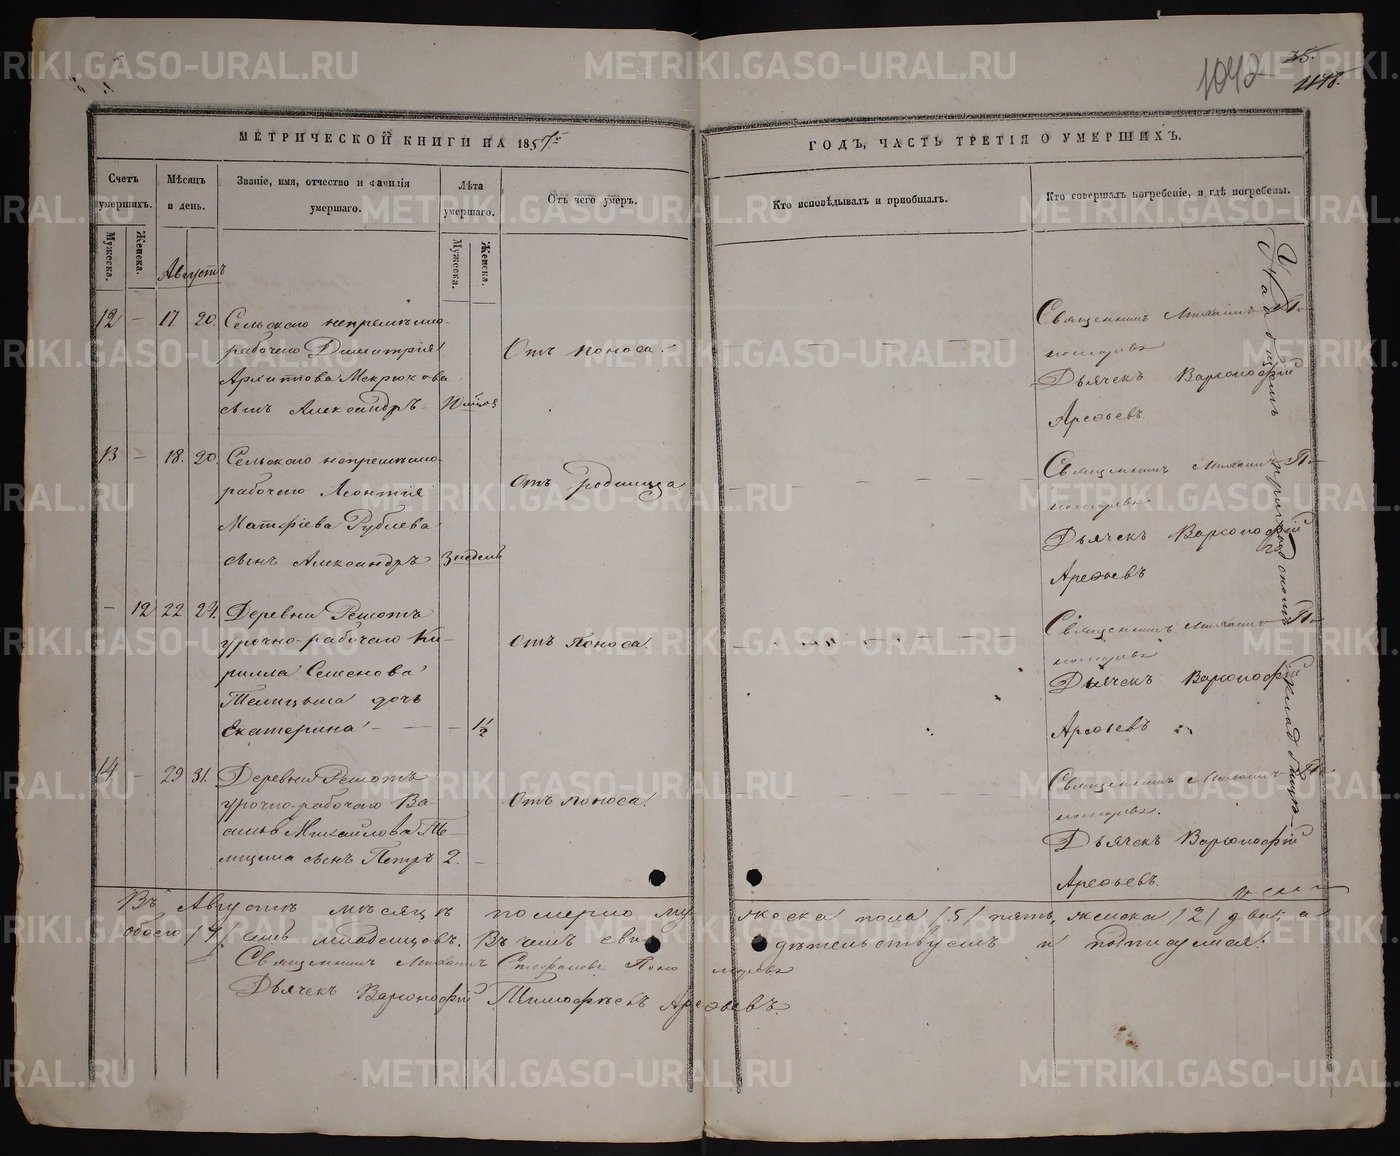 1042
35.
1118.
МЕТРИЧЕСКОЙ КНИГИ НА 1857г.
ГОДЪ, ЧАСТЬ ТРЕТІЯ О УМЕРШИХЪ.
Счетъ умершихъ.
Мѣсяцъ и день.
Званіе, имя, отчество и фамилія умершаго.
Лѣта умершаго.
Отъ чего умеръ.
Кто исповѣдывалъ и пріобщалъ.
Кто совершалъ погребеніе, и гдѣ погребены.
Мужеска.
Женска.
Августъ
Мужеска.
Женска.
12 - 17 20 Сельскаго непремѣнно-
рабочаго Димитрія
Архиппова Мекрюкова
сынъ Александръ
Отъ поноса.
Священникъ Михаилъ По-
номаревъ
Дьячекъ Варсонофій
Арефьевъ.
13 - 18. 20. Сельскаго непремѣнно-
рабочаго Леонтія
Матфіева Рублева
сынъ Александръ 3 недель
Отъ родимца
Священникъ Михаилъ По-
номаревъ
Дьячекъ Варсонофій
Арефьевъ
- 12 22 24. Деревни Решотъ
урочно-рабочаго Ки-
рилла Семенова
Телицына дочь
Екатерина - - 1 1/2
Отъ поноса.
Священникъ Михаилъ По-
номаревъ
Дьячекъ Варсонофій
Арефьевъ
14. - 29 31. Деревни Решотъ
урочно-рабочаго Ва-
силья Михайлова Те-
лицына сынъ Петръ 2. -
Отъ поноса.
Священникъ Михаилъ По-
номаревъ.
Дьячекъ Варсонофій
Арефьевъ.
На общемъ приходскомъ кладбищѣ
Въ Августѣ мѣсяцѣ померло мужеска пола /5/ пять, женска /2/ два; а
обоего /7/ семь младенцовъ. Въ чемъ свидѣтельствуемъ и подписуемся:
Священникъ Михаилъ Стефановъ Пономаревъ
Дьячекъ Варсонофій Тимофѣевъ Арефьевъ.
METRIKI.GASO-URAL.RU